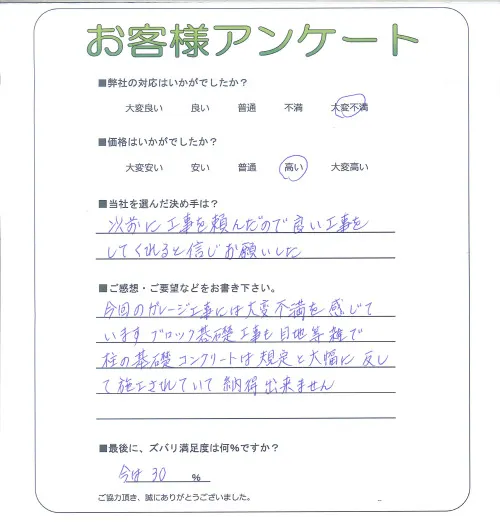 お客様アンケート
■弊社の対応はいかがでしたか？
大変良い 良い 普通 不満 大変不満
■価格はいかがでしたか？
大変安い 安い 普通 高い 大変高い
■当社を選んだ決め手は？
以前に工事を頼んだので良い工事を
してくれると信じお願いした
■ご感想・ご要望などをお書き下さい。
今回のガレージ工事には大変不満を感じて
います ブロック基礎工事も目地等雑で
柱の基礎コンクリートは規定と大幅に反し
て施工されていて納得出来ません
■最後に、ズバリ満足度は何％ですか？
今は 30 ％
ご協力頂き、誠にありがとうございました。